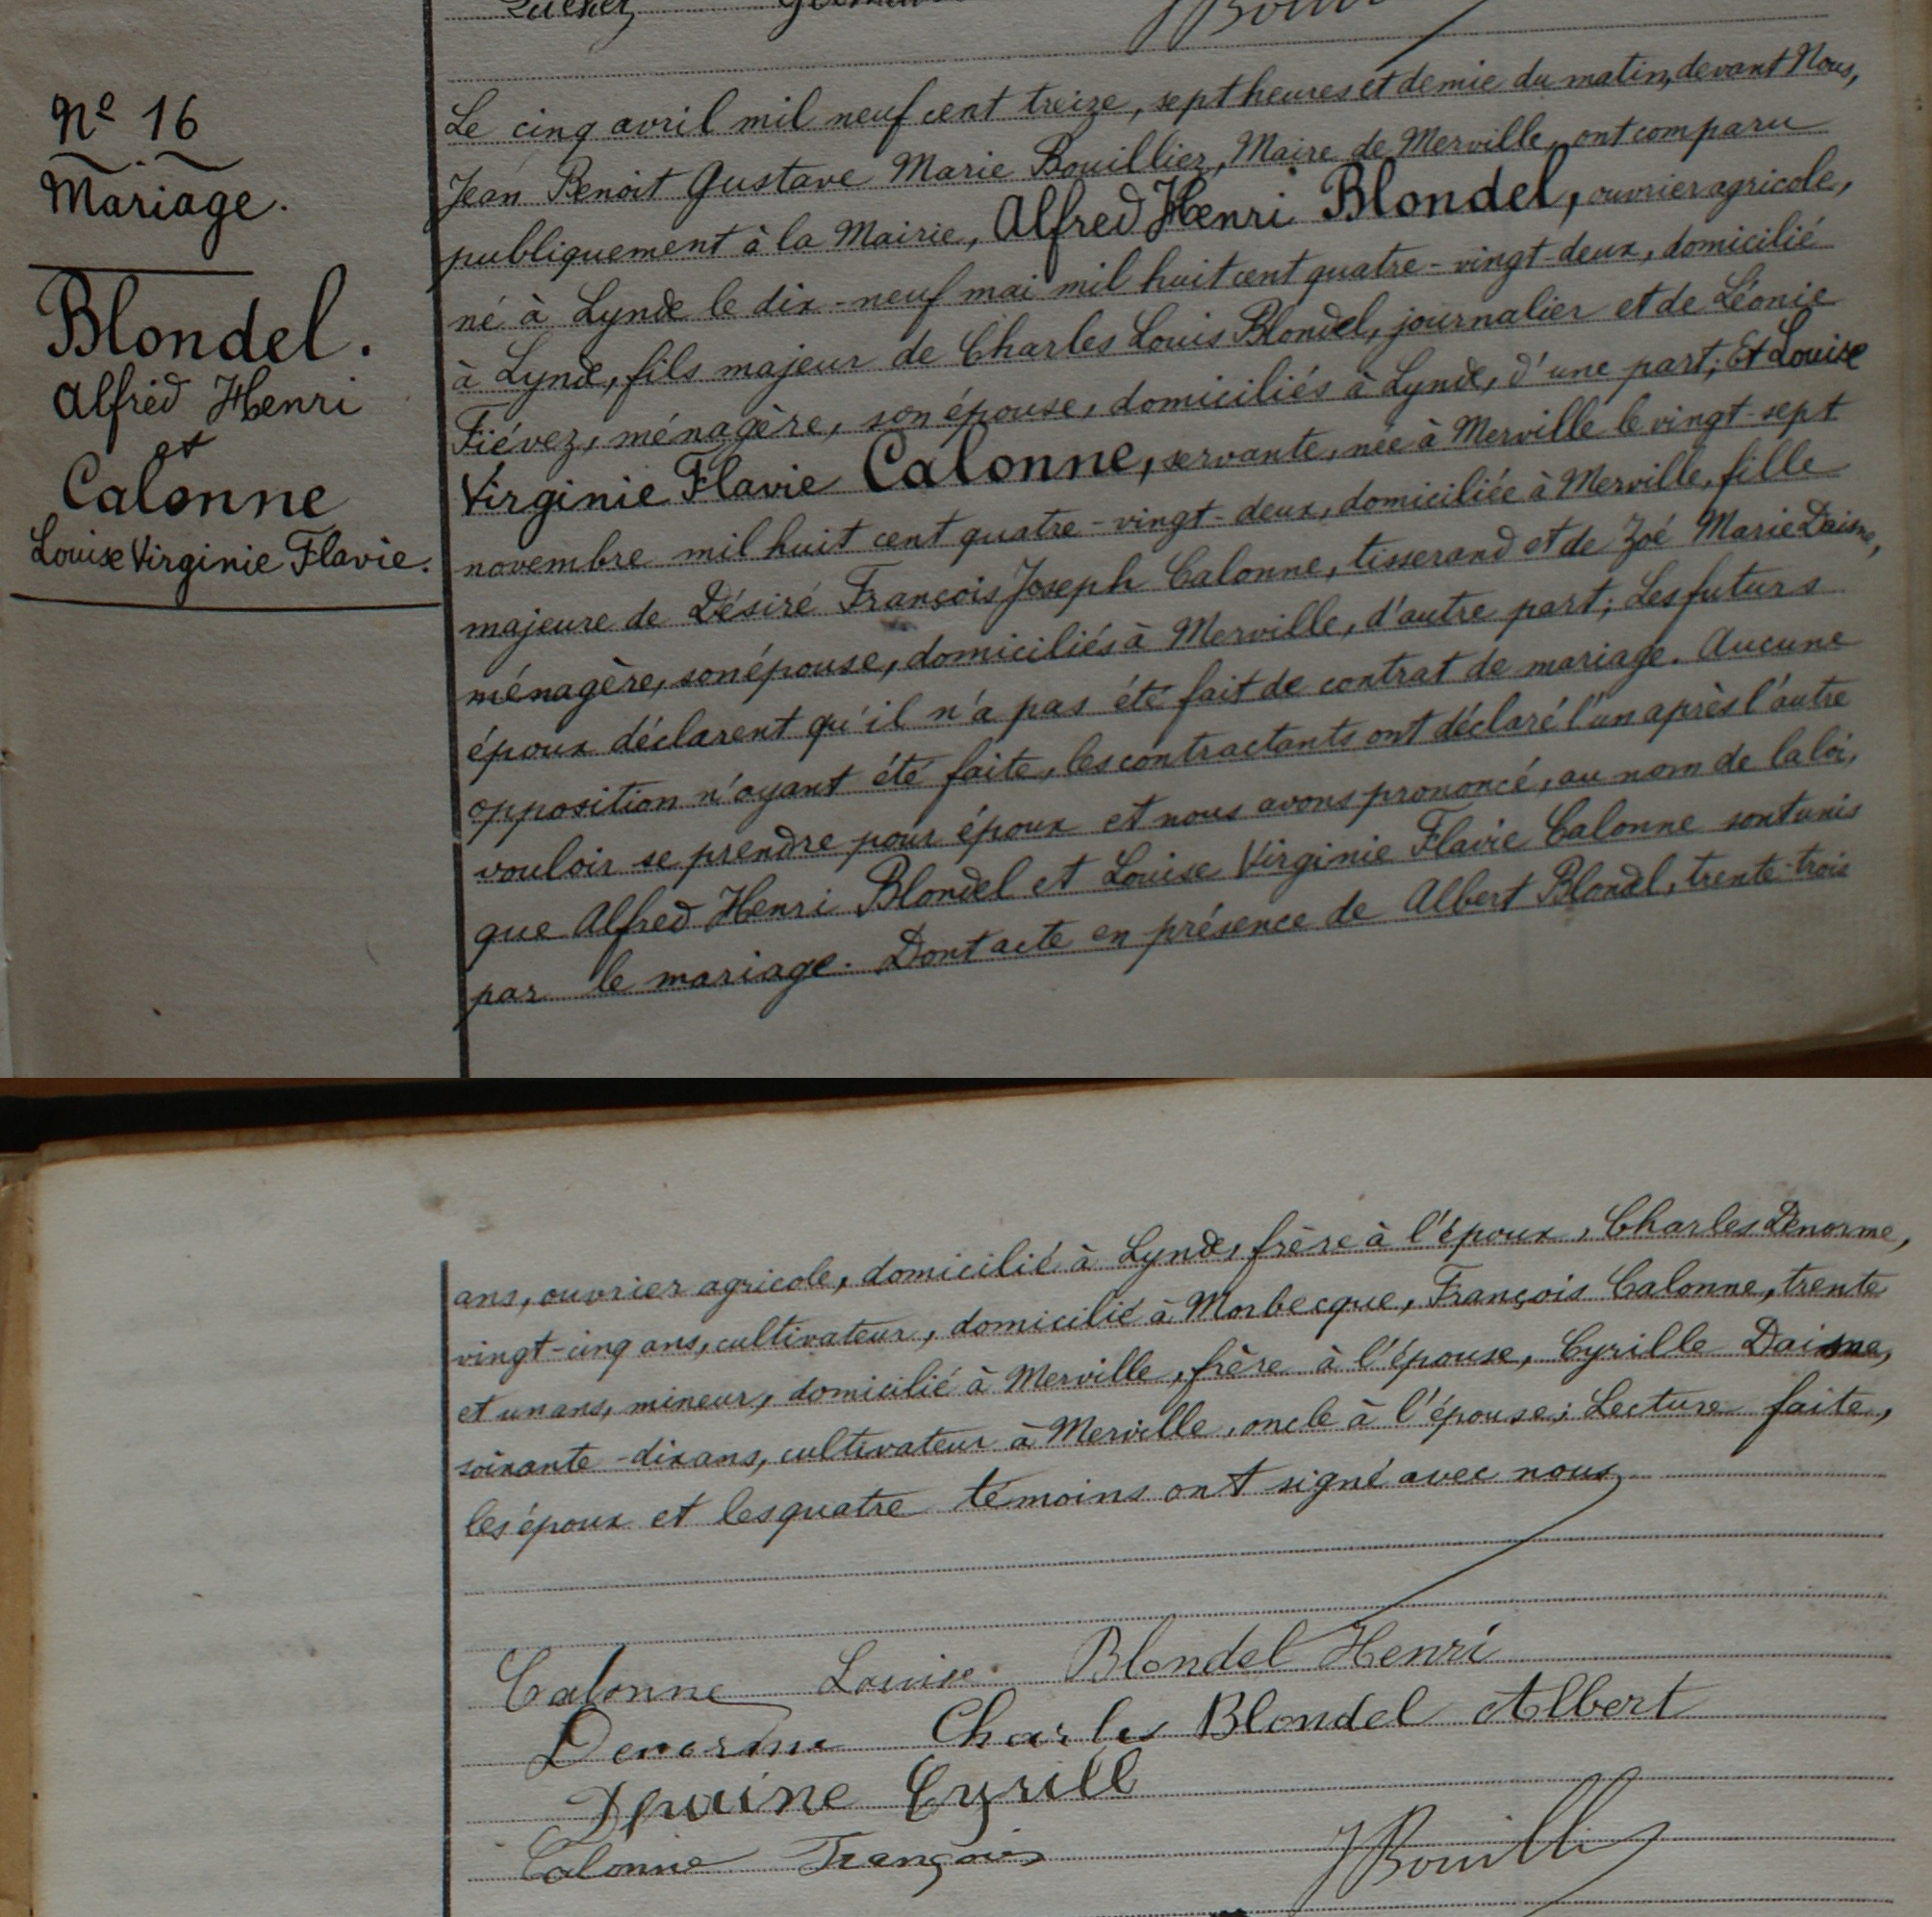 Nº 16
Mariage.
Blondel.
Alfred Henri
et
Calonne
Louise Virginie Flavie.
Le cinq avril mil neuf cent treize, sept heures et demie du matin, devant Nous,
Jean Benoit Gustave Marie Bouilliez, Maire de Merville, ont comparu
publiquement à la Mairie, Alfred Henri Blondel, ouvrier agricole,
né à Lynde le dix-neuf mai mil huit cent quatre-vingt-deux, domicilié
à Lynde, fils majeur de Charles Louis Blondel, journalier et de Léonie
Fiévez, ménagère, son épouse, domiciliés à Lynde, d'une part; Et Louise
Virginie Flavie Calonne, servante, née à Merville le vingt-sept
novembre mil huit cent quatre-vingt-deux, domiciliée à Merville, fille
majeure de Désiré François Joseph Calonne, tisserand et de Zoé Marie Daisne,
ménagère, son épouse, domiciliés à Merville, d'autre part; Les futurs
époux déclarent qu'il n'a pas été fait de contrat de mariage. Aucune
opposition n'ayant été faite, les contractants ont déclaré l'un après l'autre
vouloir se prendre pour époux et nous avons prononcé, au nom de la loi,
que Alfred Henri Blondel et Louise Virginie Flavie Calonne sont unis
par le mariage. Dont acte en présence de Albert Blondel, trente-trois
ans, ouvrier agricole, domicilié à Lynde, frère à l'époux, Charles Denorme,
vingt-cinq ans, cultivateur, domicilié à Morbecque, François Calonne, trente
et un ans, mineur, domicilié à Merville, frère à l'épouse, Cyrille Daisne,
soixante-dix ans, cultivateur à Merville, oncle à l'épouse; Lecture faite,
les époux et les quatre témoins ont signé avec nous
Calonne Louise Blondel Henri
Denorme Charles Blondel Albert
Cyrill
Calonne François
JBouilliez